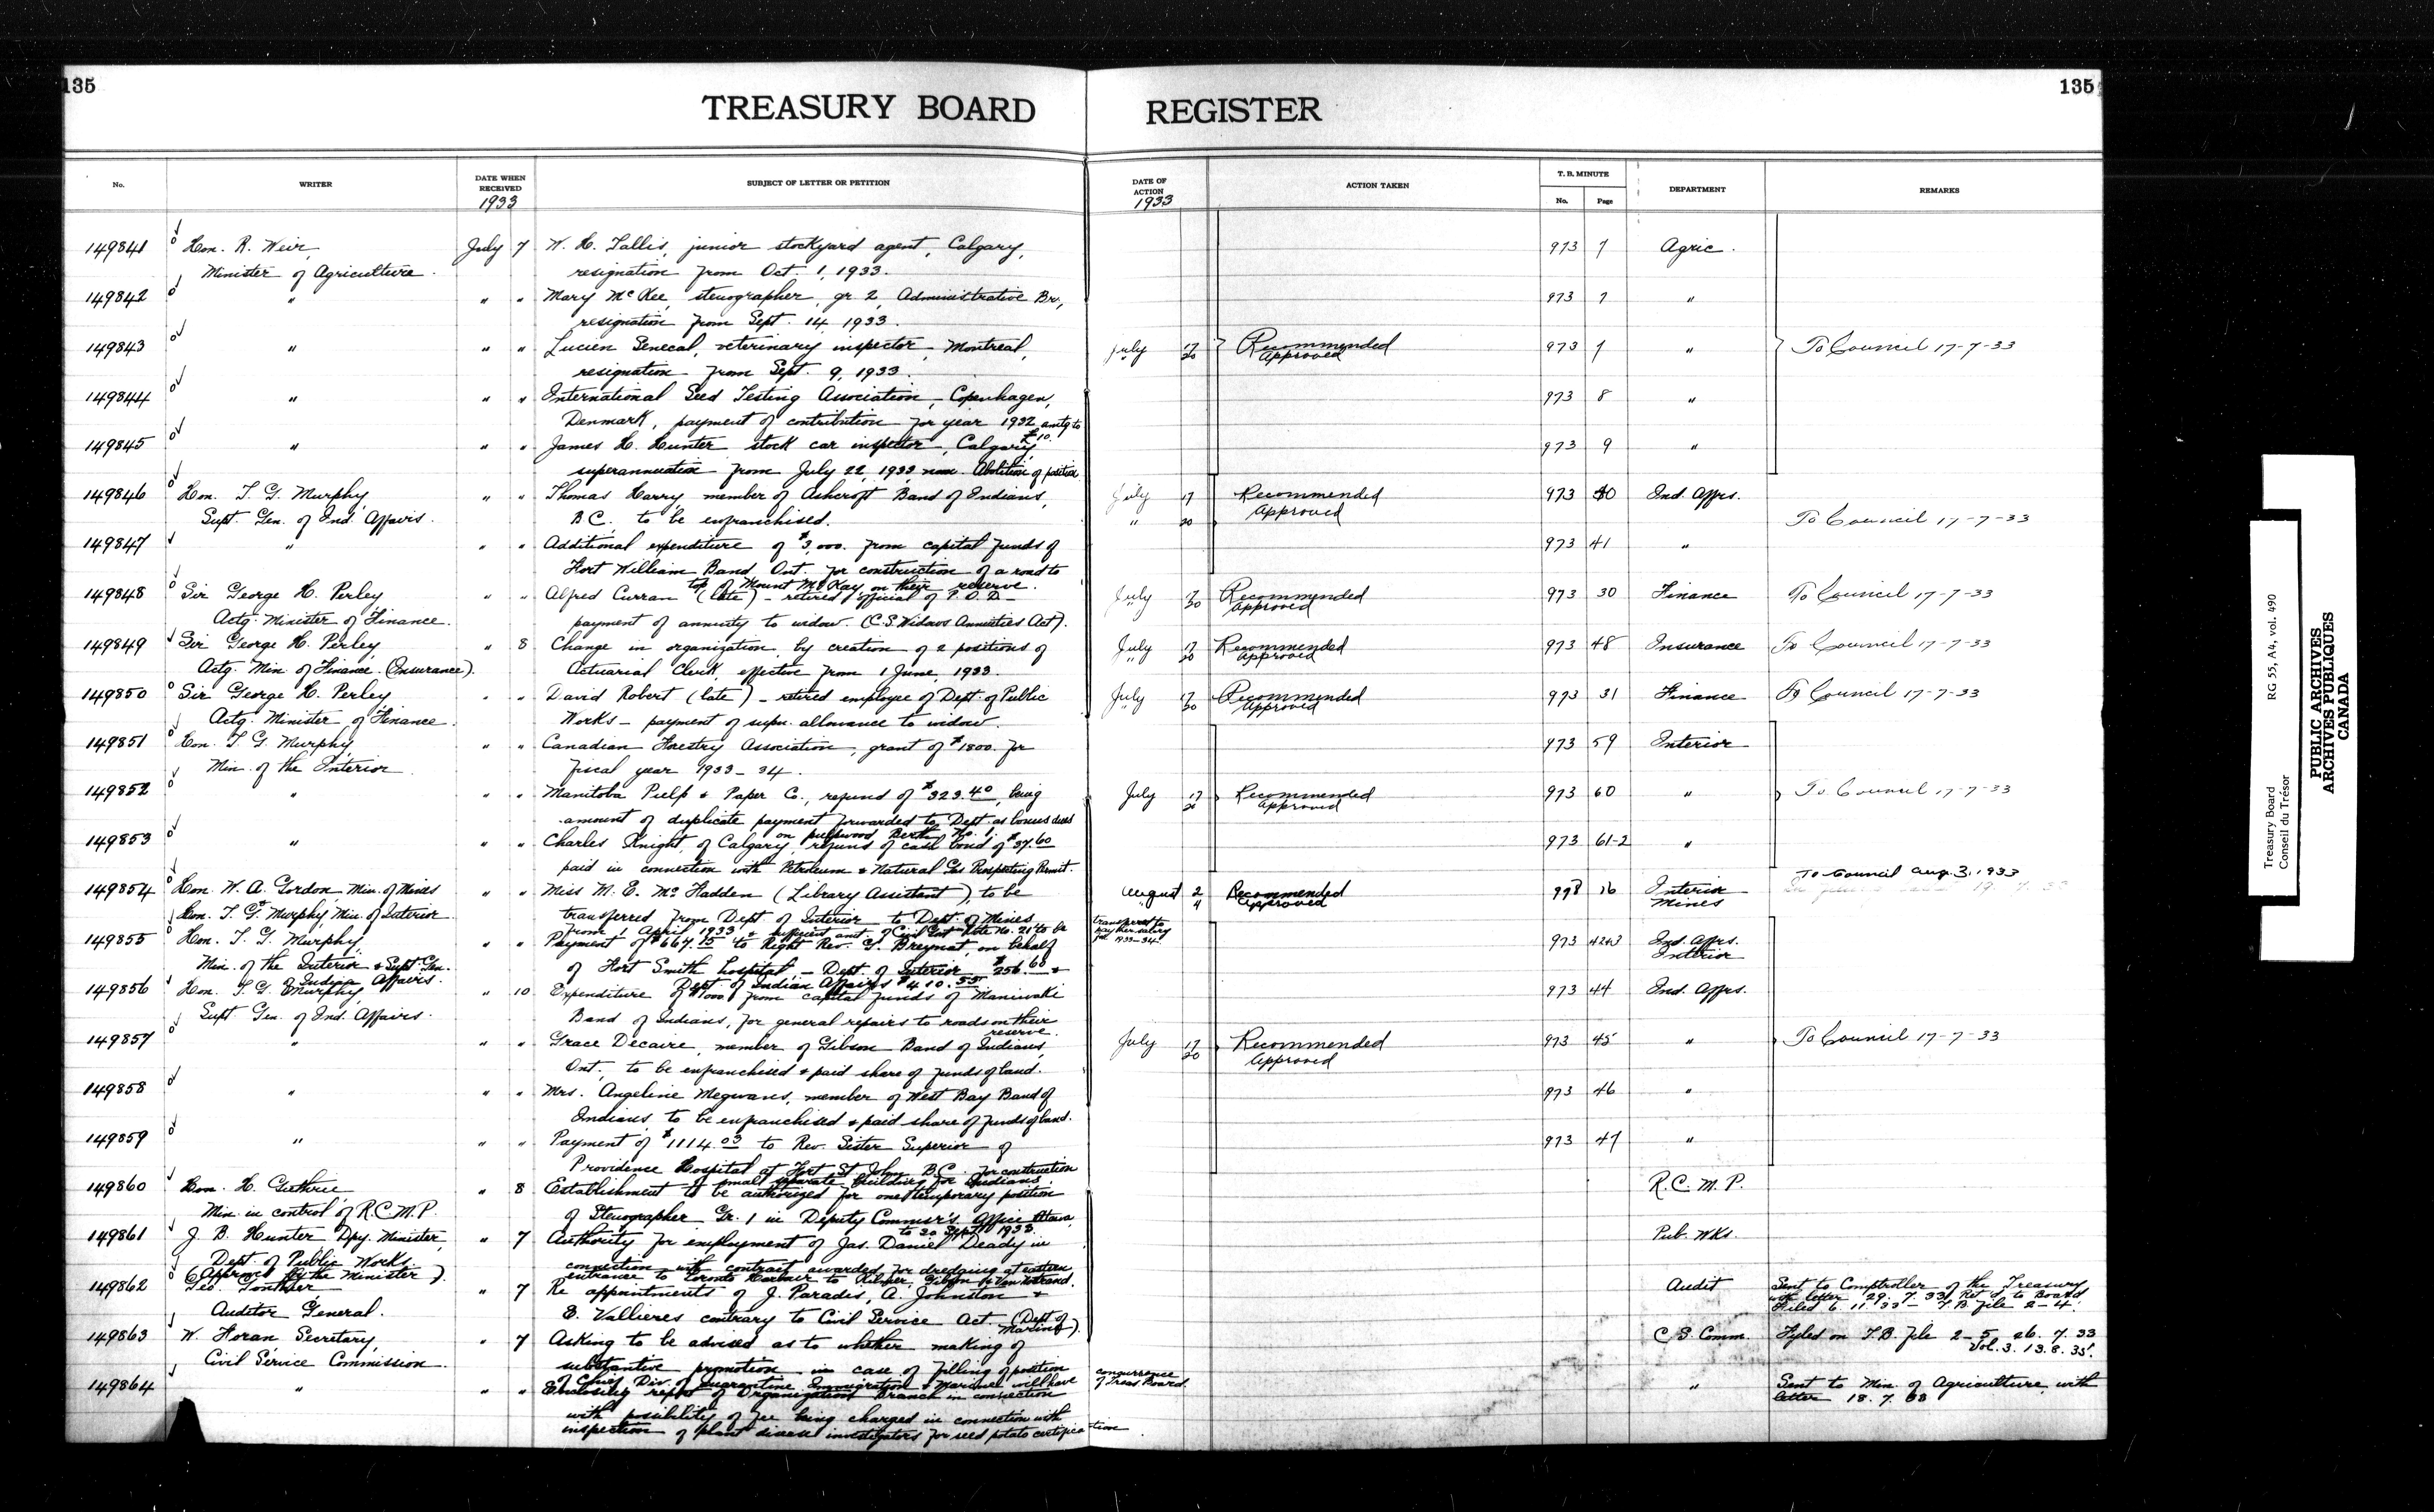 135
135
TREASURY BOARD REGISTER
No.
WRITER
DATE WHEN RECEIVED
1933
SUBJECT OF LETTER OR PETITION
DATE OF ACTION
1933
ACTION TAKEN
T. B. MINUTE
No.
Page
DEPARTMENT
REMARKS
149841 Hon. R. Weir, July 7 W. H. Tallis, junior stockyard agent, Calgary, 973 7 Agric.
Minister of Agriculture. resignation from Oct. 1, 1933.
149842 " " " Mary McKee, stenographer, gr. 2, Administrative Br., 973 7 "
resignation from Sept. 14, 1933.
149843 " " " Lucien Senecal, veterinary inspector, Montreal, July 17 Recommended 973 7 " To Council 17-7-33
" 20 Approved
resignation from Sept. 9, 1933.
149844 " " " International Seed Testing Association, Copenhagen, 973 8 "
Denmark, payment of contribution for year 1932 amtg to
£10.
149845 " " " James H. Hunter stock car inspector, Calgary, 973 9 "
superannuation from July 22, 1933, Abolition of position
149846 Hon. T. G. Murphy, " " Thomas Harry member of Ashcroft Band of Indians, July 17 Recommended 973 40 Ind. Affrs.
Supt. Gen. of Ind. Affairs. B.C., to be enfranchised. " 20 Approved To Council 17-7-33
149847 " " " Additional expenditure of $3,000. from capital funds of 973 41 "
Fort William Band, Ont. for construction of a road to
top of Mount McKay on their reserve.
149848 Sir George H. Perley, " " Alfred Curran (late) - retired official of P.O.D. July 17 Recommended 973 30 Finance To Council 17-7-33
" 20 Approved
Actg. Minister of Finance. payment of annuity to widow. (C.S. Widows Annuities Act).
149849 Sir George H. Perley, " 8 Change in organization, by creation of 2 positions of July 17 Recommended 973 48 Insurance To Council 17-7-33
" 20 Approved
Actg. Min. of Finance. (Insurance). Actuarial Clerk, effective from 1 June, 1933.
149850 Sir George H. Perley " " David Robert (late) - retired employee of Dept. of Public July 17 Recommended 973 31 Finance To Council 17-7-33
" 20 Approved
Actg. Minister of Finance. Works - payment of supn. allowance to widow.
149851 Hon. T. G. Murphy, " " Canadian Forestry Association, grant of $1800. for 973 59 Interior
Min. of the Interior fiscal year 1933-34.
149852 " " " Manitoba Pulp & Paper Co., refund of $323.40, being July 17 Recommended 973 60 " To Council 17-7-33
" 20 Approved
amount of duplicate payment forwarded to Dept. as bonus dues
on pulpwood Berth No. 1.
149853 " " " Charles Knight, of Calgary, refund of cash bond of $37.60 973 61-2 "
paid in connection with Petroleum & Natural Gas Prospecting Permit.
To Council Aug. 3, 1933
149854 Hon. W. A. Gordon, Min. of Mines " " Miss M. E. McFadden (Library Assistant), to be August 2 Recommended 998 16 Interior
" 4 Approved Mines
Hon. T. G. Murphy, Min. of Interior transferred from Dept. of Interior to Dept. of Mines
from 1 April 1933 & sufficient amt. of Civil Govt Vote No. 21 to be
transferred to pay her salary for 1933-34.
149855 Hon. T. G. Murphy, " " Payment of $667.15 to Right Rev. G. Breynat, on behalf 973 42&3 Ind. Affrs.
Interior
Min. of the Interior & Supt. Gen. of Fort Smith hospital, - Dept. of Interior $256.60 &
of Indian Affairs. Dept. of Indian Affairs $410.55
149856 Hon. T. G. Murphy, " 10 Expenditure of $1000. from capital funds of Maniwaki 973 44 Ind. Affrs.
Supt. Gen. of Ind. Affairs. Band of Indians, for general repairs to roads on their
reserve.
149857 " " " Grace Decaire, member of Gibson Band of Indians, July 17 Recommended 973 45 " To Council 17-7-33
20 Approved
Ont., to be enfranchised & paid share of funds of band.
149858 " " " Mrs. Angeline Megwans, member of West Bay Band of 973 46 "
Indians, to be enfranchised & paid share of funds of band.
149859 " " " Payment of $1114.03 to Rev. Sister Superior of 973 47 "
Providence Hospital at Fort St. John B.C. for construction
of small separate building for Indians.
149860 Hon. H. Guthrie, " 8 Establishment to be authorized for one temporary position R.C.M.P.
Min. in control of R.C.M.P. of Stenographer Gr. 1 in Deputy Commsr's. Office Ottawa,
to 30 Sept. 1933.
149861 J. B. Hunter Dpy. Minister, " 7 Authority for employment of Jas. Daniel Deady in Pub. Wks.
Dept. of Public Works connection with contract awarded for dredging at eastern
(Approved by the Minister). entrance to Toronto Harbour to Kilmer,
149862 Geo. Gonthier " 7 Re appointments of J. Paradis, A. Johnston & Audit Sent to Comptroller of the Treasury
with letter 29. 7. 33 Ret'd to Board
Auditor General. E. Vallieres contrary to Civil Service Act (Dept of Marine). Filed 6. 11. 33 - T. B. file 2-4.
149863 W. Foran Secretary, " 7 Asking to be advised as to whether making of C. S. Comm. Fyled on T.B. file 2-5 26. 7. 33
Vol. 3. 13. 8. 35.
Civil Service Commission substantive promotion in case of filling of position
of Chief Div. of Quarantine Immigration & Marine will have concurrence of Treas. Board.
149864 " " " Enclosing report of Organization Branch in connection " Sent to Min. of Agriculture with
letter 18. 7. 33
with possibility of fee being charged in connection with
inspection of plant disease investigators for seed potato certification
Treasury Board RG 55, A4, vol. 490
Conseil du Trésor
PUBLIC ARCHIVES
ARCHIVES PUBLIQUES
CANADA